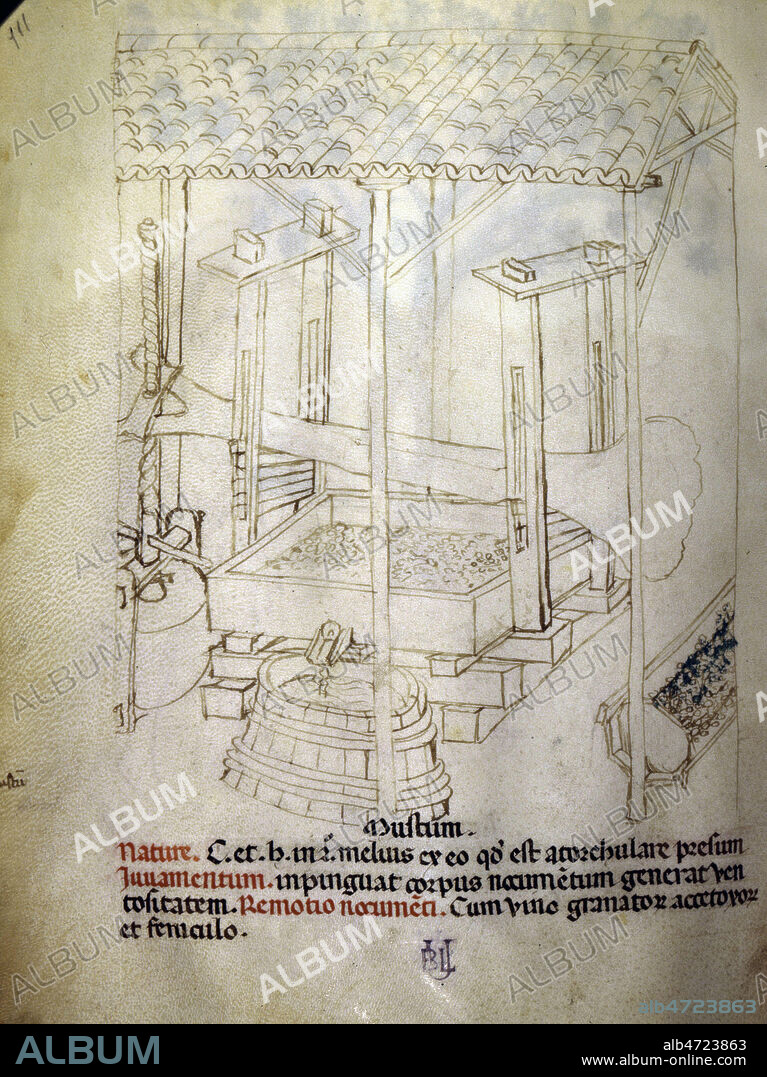 Mustum.
Nature. C. et. h. in 2̊. melius ex eo qđ est a torchulare presum
Juvamentum. inpinguat corpus nocumētum generat ven
tositatem. Remotio nocumēti. Cum vino granatoꝝ accetoxoꝝ
et feniculo.
alb4723863
ALBUM
alb4723863
www.album-online.com